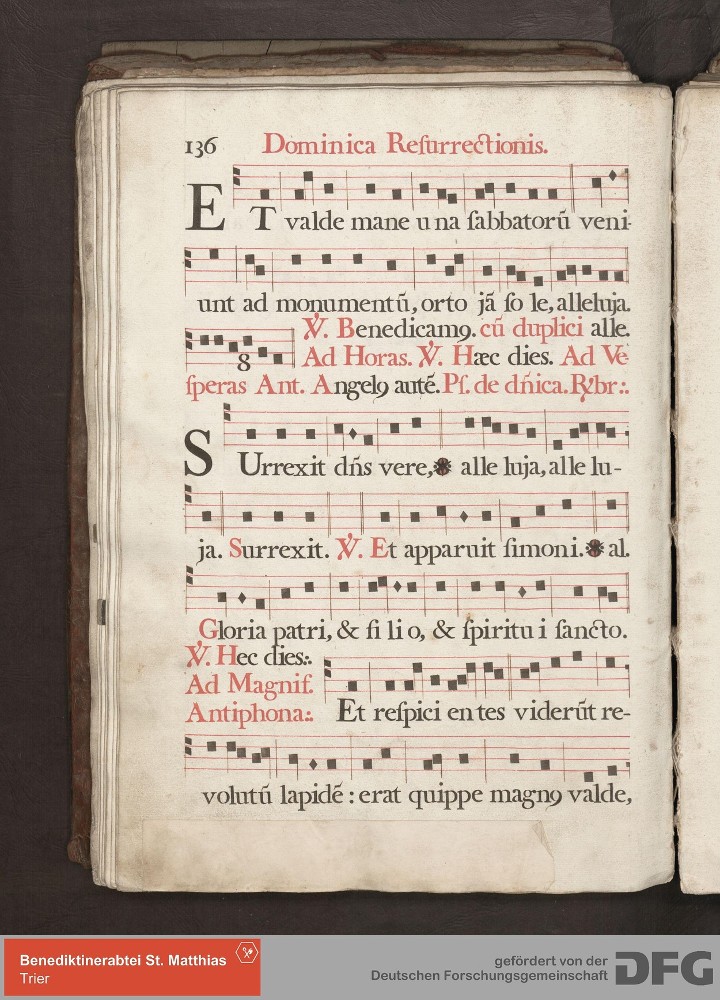 136 Dominica Reſurrectionis.
ET valde mane una ſabbatorū veni-
unt ad monumentū, orto jā ſole, alleluja.
℣. Benedicamꝰ. cū duplici alle.
8
Ad Horas. ℣. Hæc dies. Ad Ve
ſperas Ant. Angelꝰ autē. Pſ. de dn̄ica. R℣br:.
SUrrexit dn̄s vere, ✽ alle luja, alle lu-
ja. Surrexit. ℣. Et apparuit ſimoni. ✽ al.
Gloria patri, & fi li o, & ſpiritu i ſancto.
℣. Hec dies:.
Ad Magnif.
Antiphona:. Et reſpici en tes viderūt re-
volutū lapidē : erat quippe magnꝰ valde,
Benediktinerabtei St. Matthias
Trier
gefördert von der
Deutschen Forschungsgemeinschaft DFG